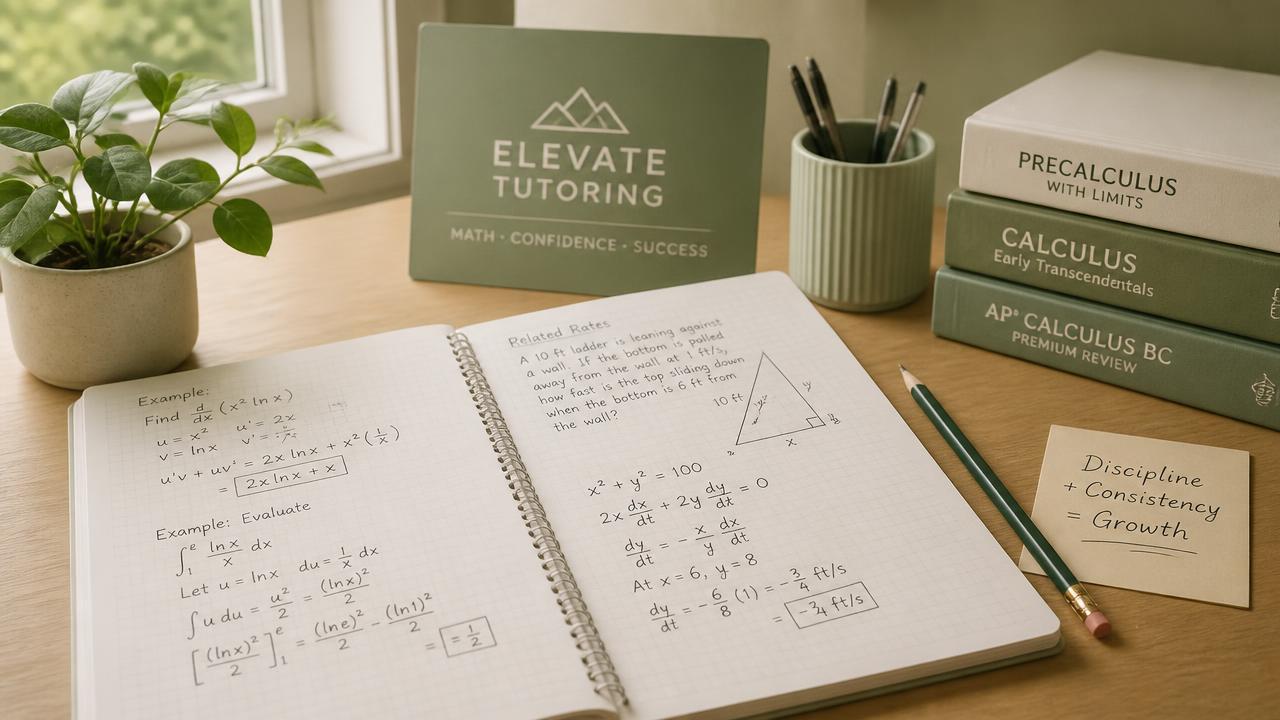 ELEVATE
TUTORING
MATH · CONFIDENCE · SUCCESS
PRECALCULUS
WITH LIMITS
CALCULUS
Early Transcendentals
AP® CALCULUS BC
PREMIUM REVIEW
Example:
Find d/dx (x² ln x)
u = x² u' = 2x
v = ln x v' =
u'v + uv' = 2x ln x + x² (1/x)
= 2x ln x + x
Example: Evaluate
∫₁ᵉ ln x / x dx
Let u = ln x du = 1/x dx
∫ u du = u²/2 = (ln x)²/2
[(ln x)²/2]₁ᵉ = (ln e)²/2 - (ln 1)²/2
= = 1/2
Related Rates
A 10 ft ladder is leaning against
a wall. If the bottom is pulled
away from the wall at 1 ft/s,
how fast is the top sliding down
when the bottom is 6 ft from
the wall?
10 ft
y
x
x² + y² = 100
2x dx/dt + 2y dy/dt = 0
dy/dt = - x/y dx/dt
At x = 6, y = 8
dy/dt = - 6/8 (1) = - 3/4 ft/s
= -3/4 ft/s
Discipline
+ Consistency
= Growth